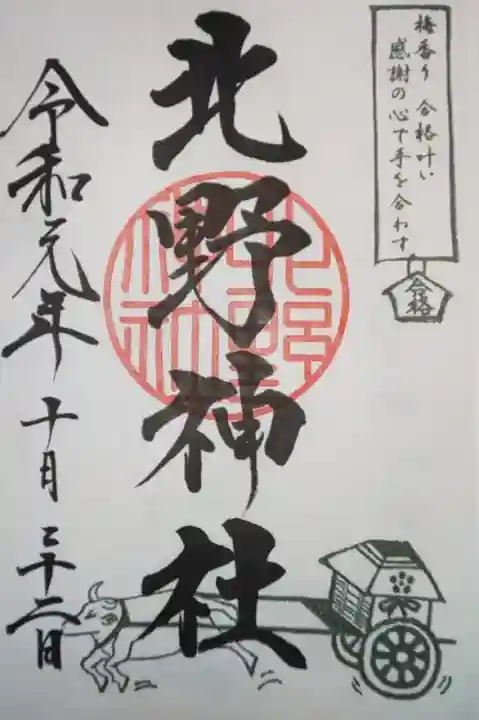 梅香り 合格叶い
感謝の心で手を合わす
合格
北野神社
北野神社
令和元年 十月 二十二日